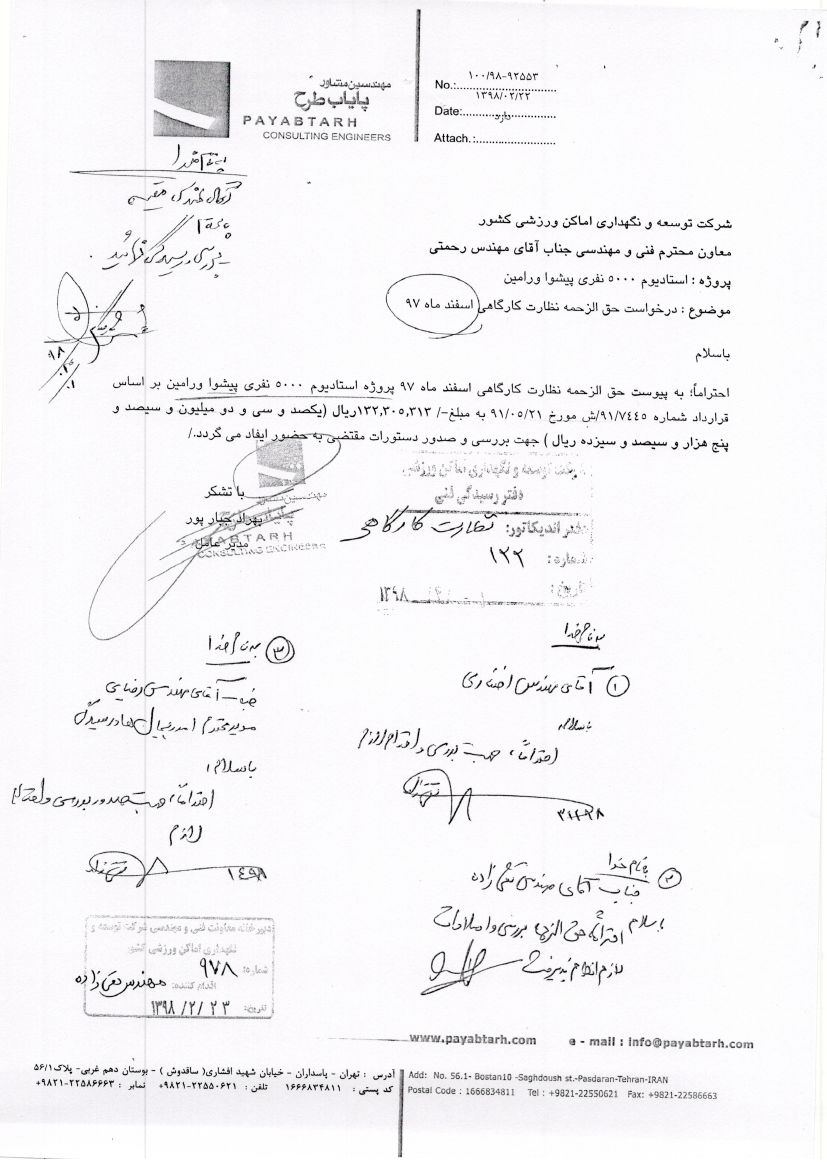 مهندسین مشاور
پایاب طرح
PAYABTARH
CONSULTING ENGINEERS
No.: ۱۰۰/۹۸-۹۲۵۵۳
Date: ۱۳۹۸/۰۲/۲۲
Attach.: دارد
شرکت توسعه و نگهداری اماکن ورزشی کشور
معاون محترم فنی و مهندسی جناب آقای مهندس رحمتی
پروژه : استادیوم ۵۰۰۰ نفری پیشوا ورامین
موضوع : درخواست حق الزحمه نظارت کارگاهی اسفند ماه ۹۷
باسلام
احتراماً: به پیوست حق الزحمه نظارت کارگاهی اسفند ماه ۹۷ پروژه استادیوم ۵۰۰۰ نفری پیشوا ورامین بر اساس
قرارداد شماره ۹۱/۷۴۴۵/ش مورخ ۹۱/۰۵/۲۱ به مبلغ-/ ۱۳۲,۳۰۵,۳۱۳ریال (یکصد و سی و دو میلیون و سیصد و
پنج هزار و سیصد و سیزده ریال ) جهت بررسی و صدور دستورات مقتضی به حضور ایفاد می گردد./
با تشکر
مدیر عامل
دفتر رسیدگی فنی
دفتر اندیکاتور: نظارت کارگاهی
شماره: ۱۲۲
تاریخ: ۱۳۹۸
بنام خدا
۱ آقای مهندس
باسلام
احتراماً، جهت بررسی و اقدام لازم
۳ بنام خدا
جناب آقای مهندس رضایی
باسلام،
احتراماً، جهت
لازم
۲ بنام خدا
جناب آقای مهندس تقی زاده
باسلام
لازم انجام پذیرفت
دبیرخانه معاونت فنی و مهندسی شرکت توسعه و
نگهداری اماکن ورزشی کشور
شماره: ۹۷۸
اقدام کننده: مهندس تقی زاده
تاریخ: ۱۳۹۸/۲/۲۳
www.payabtarh.com e - mail : info@payabtarh.com
آدرس : تهران - پاسداران - خیابان شهید افشاری( ساقدوش ) - بوستان دهم غربی- پلاک۵۶/۱
کد پستی : ۱۶۶۶۸۳۴۸۱۱ تلفن : ۲۲۵۵۰۶۲۱-۹۸۲۱+ نمابر : ۲۲۵۸۶۶۶۳-۹۸۲۱+
Add: No. 56.1- Bostan10 -Saghdoush st.-Pasdaran-Tehran-IRAN
Postal Code : 1666834811 Tel : +9821-22550621 Fax: +9821-22586663